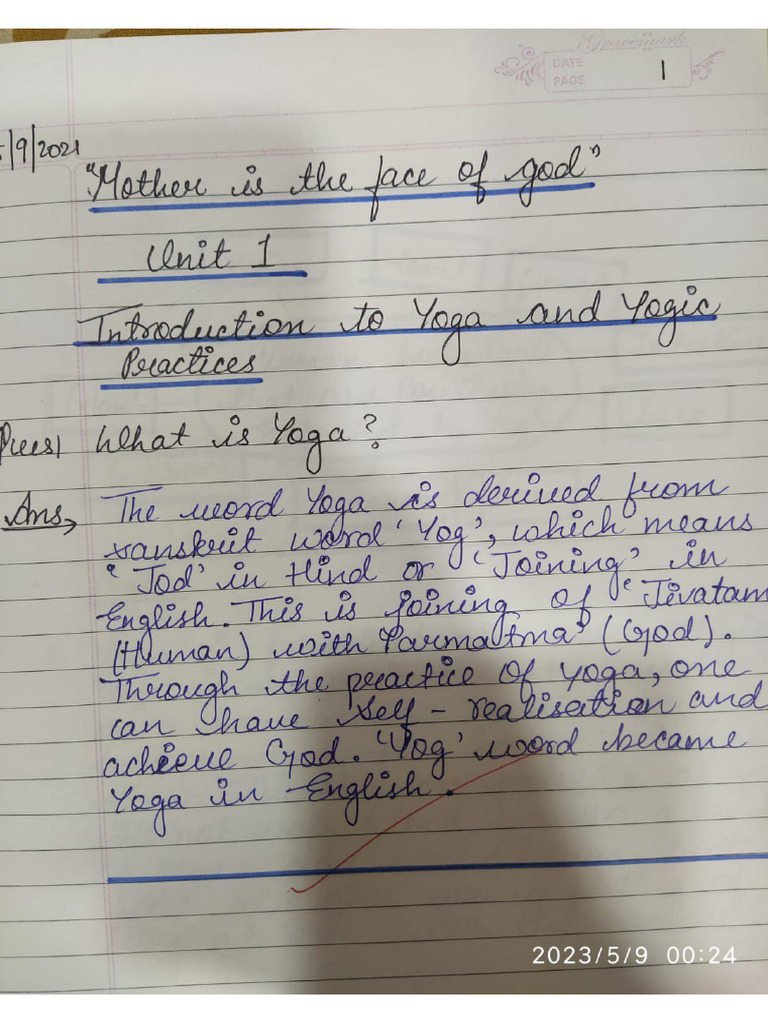 Gracemark
DATE
PAGE 1
5/9/2021
"Mother is the face of god"
Unit 1
Introduction to Yoga and Yogic
Practices
Ques1 What is Yoga?
Ans→ The word Yoga is derived from
sanskrit word 'Yog', which means
'Jod' in Hind or 'Joining' in
English. This is joining of 'Jivatam
(Human) with Parmatma' (God).
Through the practice of yoga, one
can have self-realisation and
achieve God. 'Yog' word became
Yoga in English.
2023/5/9 00:24